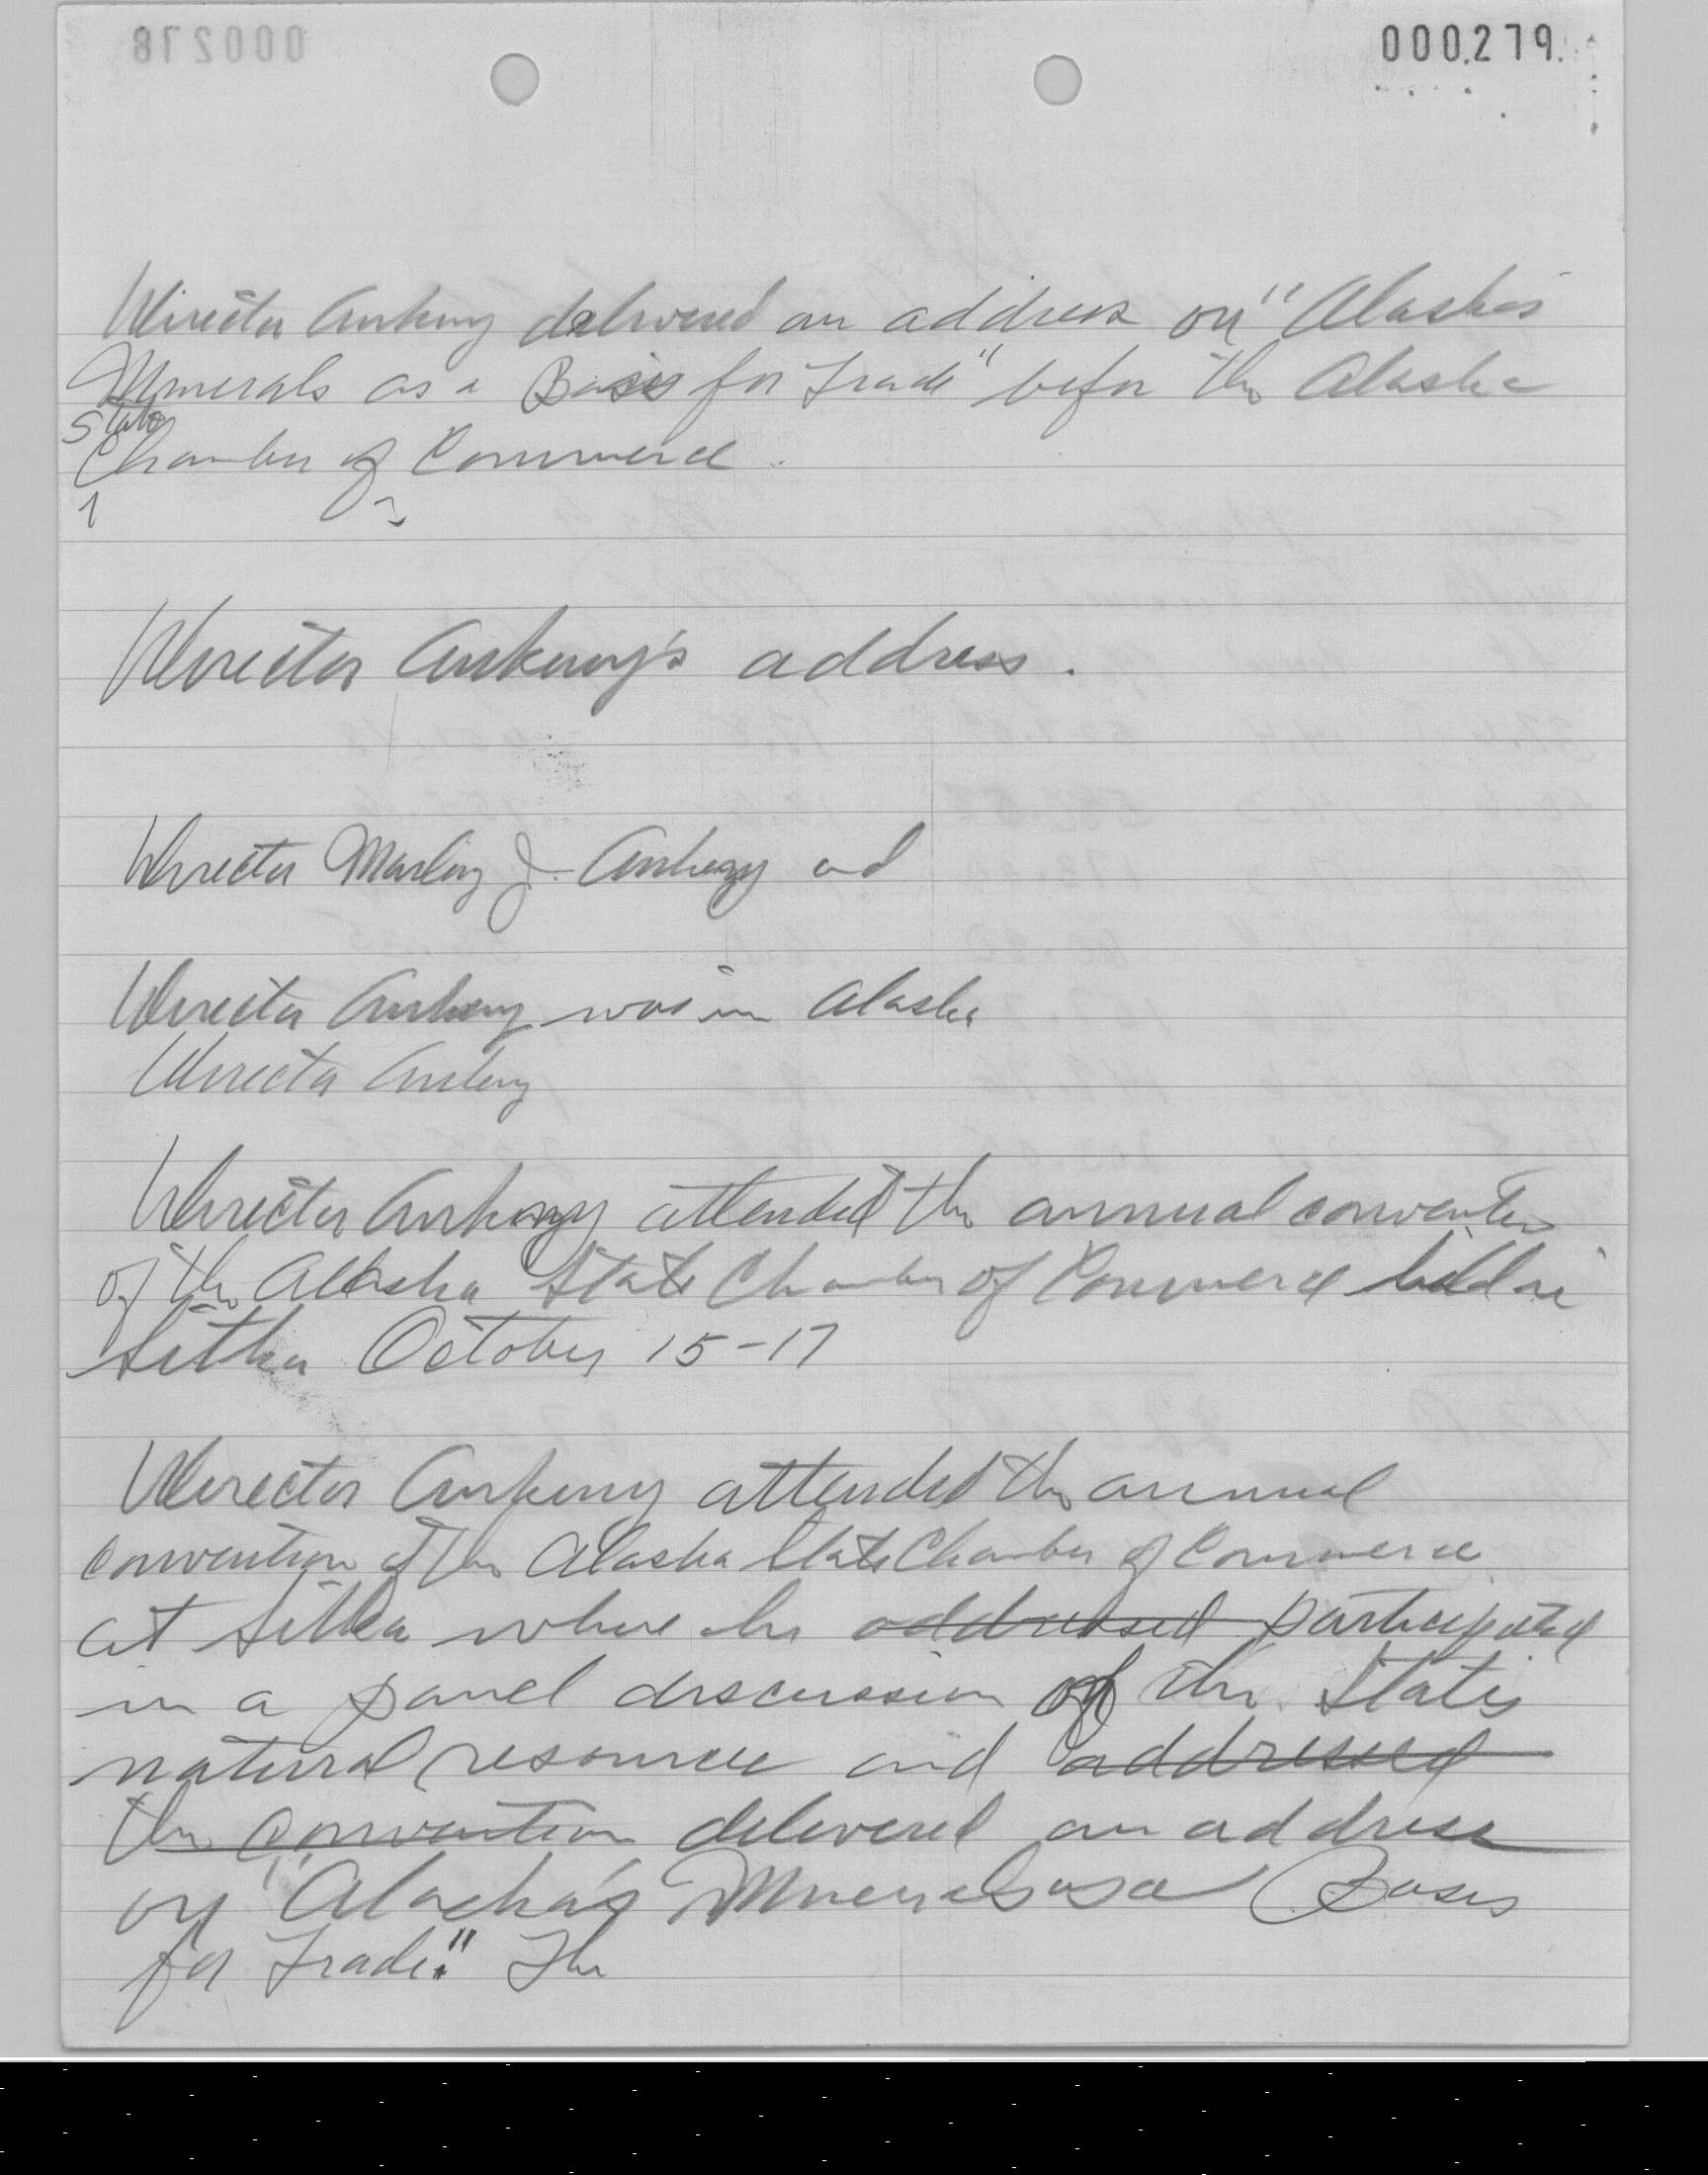 000278
000279
Director Ankeny delivered an address on "Alaska's
Minerals as a Basis for Trade" before the Alaska
State
Chamber of Commerce.
Director Ankeny's address.
Director Marling J. Ankeny and
Director Ankeny was in Alaska
Director Ankeny
Director Ankeny attended the annual convention
of the Alaska State Chamber of Commerce held in
Sitka October 15-17
Director Ankeny attended the annual
convention of the Alaska State Chamber of Commerce
at Sitka where he addressed participated
in a panel discussion of the State's
natural resource and addressed
the convention delivered an address
on "Alaska's Minerals as a Basis
for Trade." The